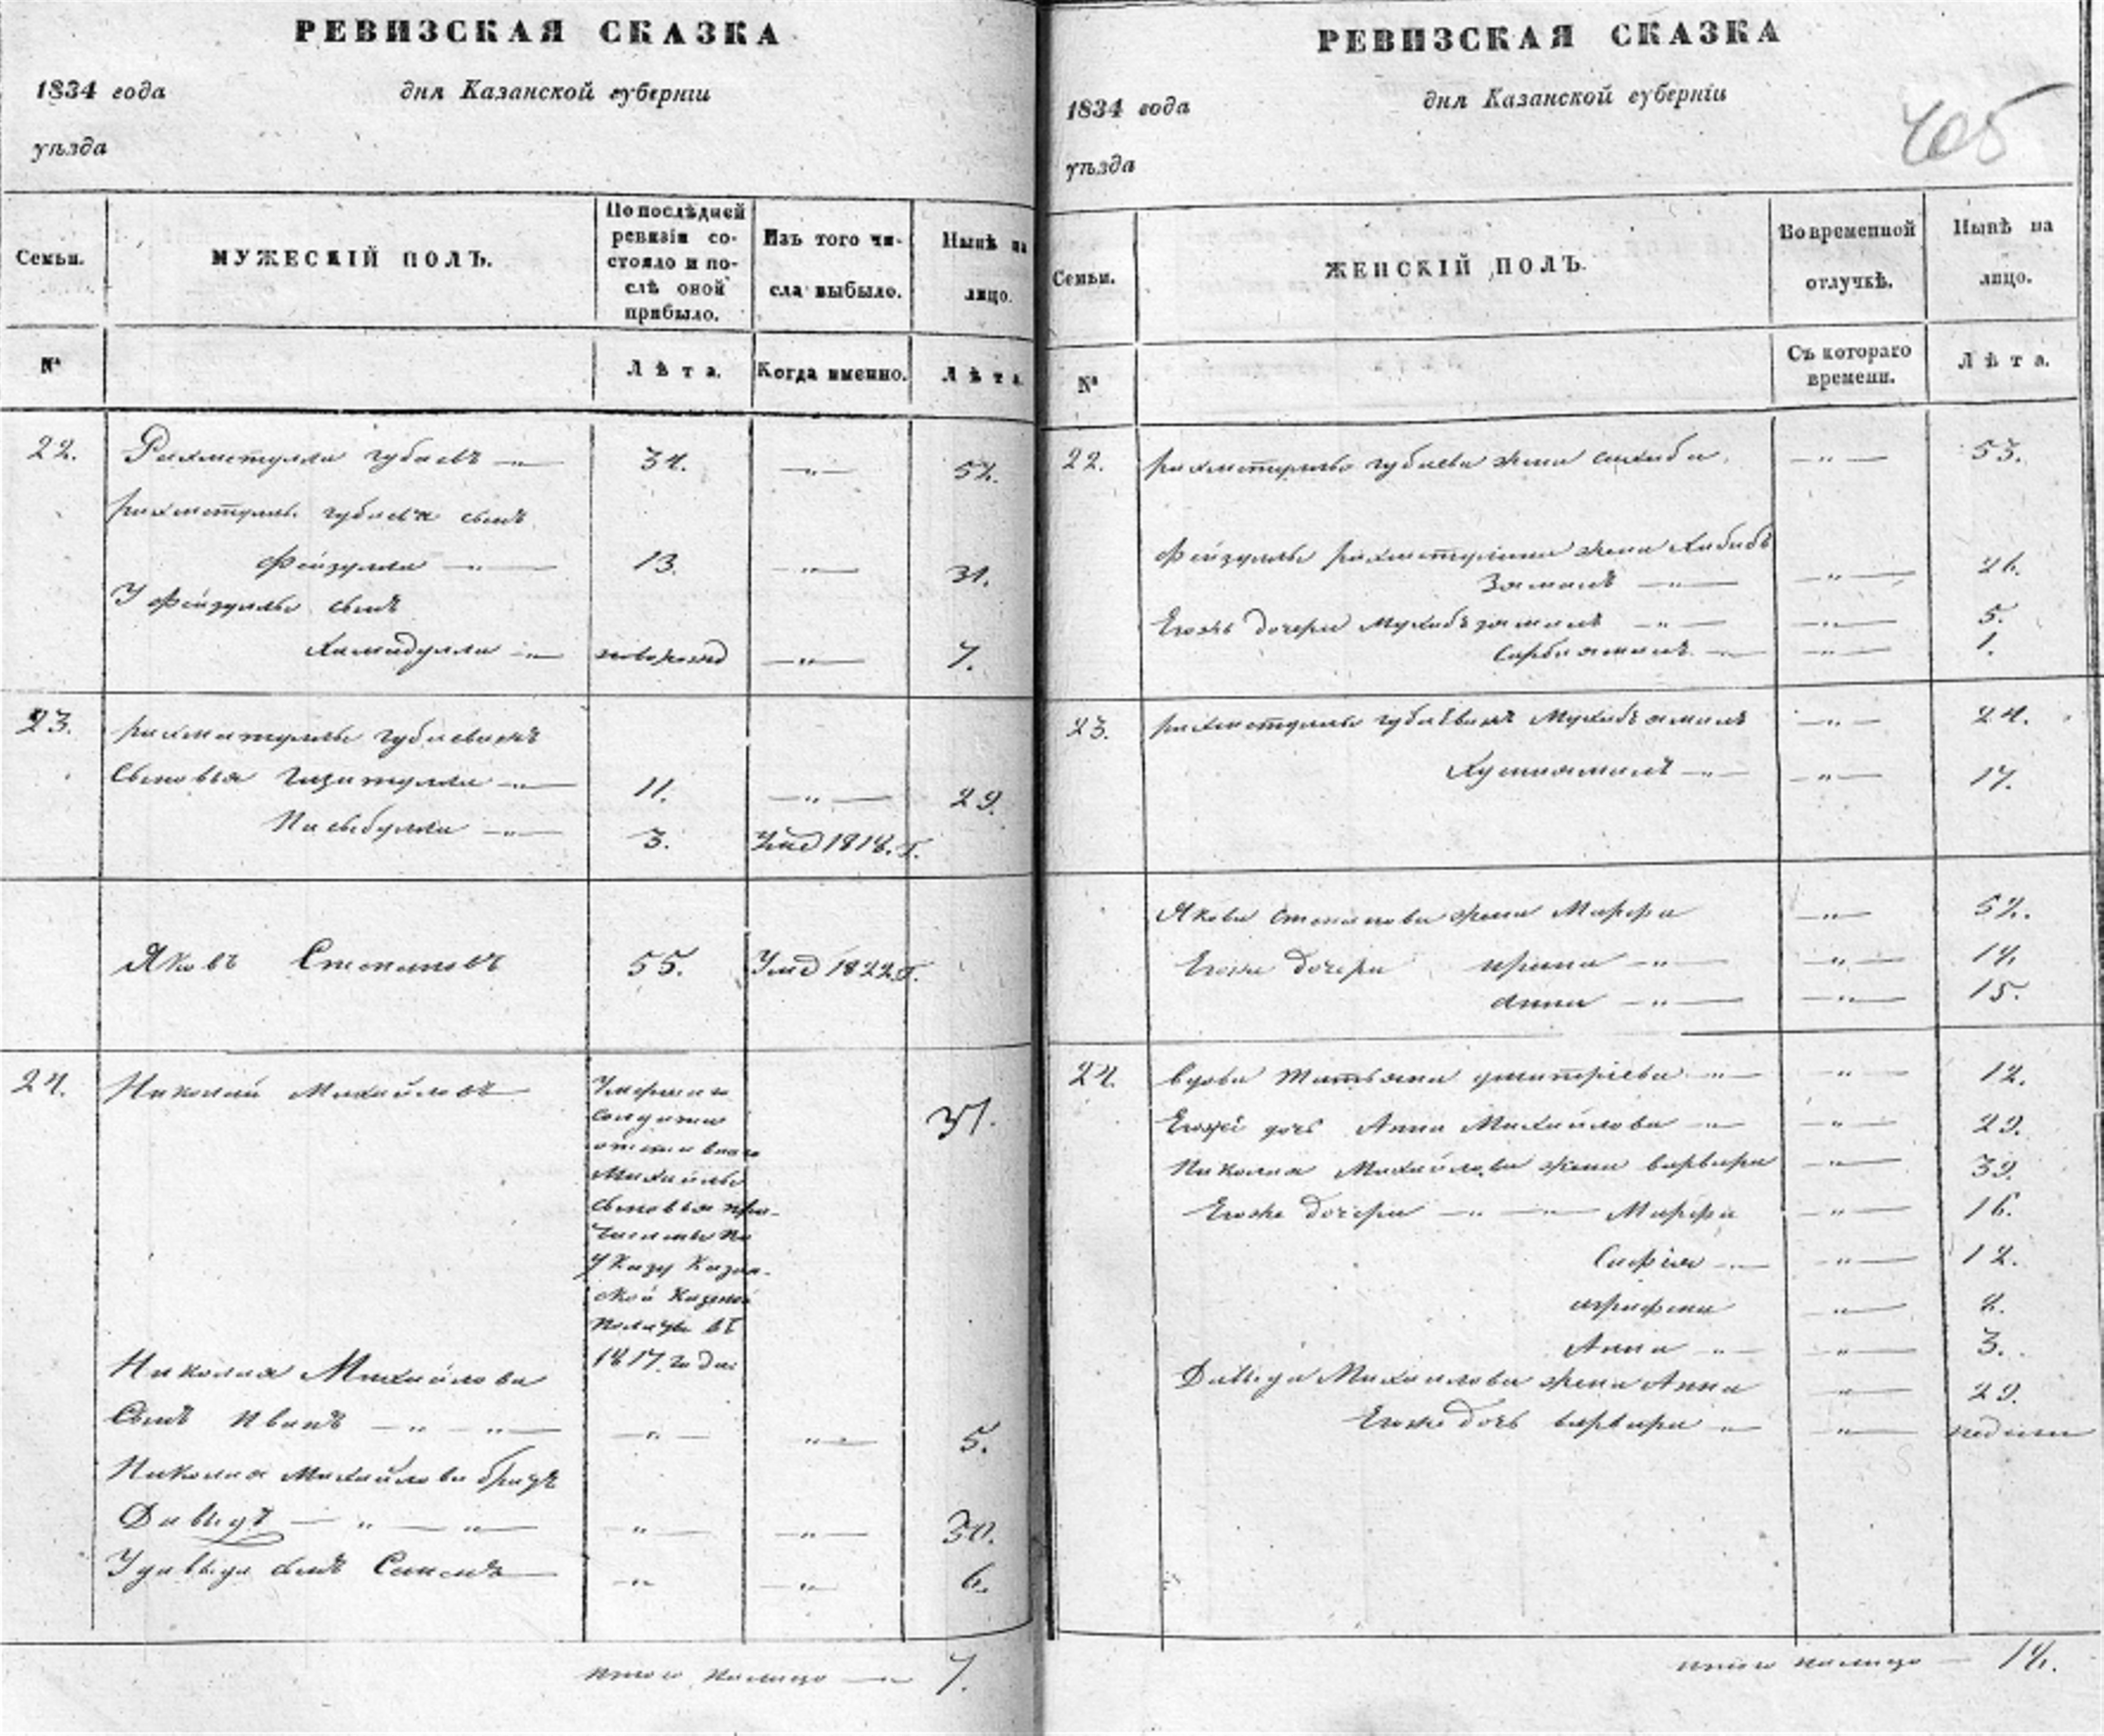 РЕВИЗСКАЯ СКАЗКА
1834 года дня Казанской губерніи
уѣзда
Семьи.
МУЖЕСКІЙ ПОЛЪ.
По послѣдней ревизіи со-
стояло и по-
слѣ оной
прибыло.
Изъ того чи-
сла выбыло.
Нынѣ на
лицо.
№
Лѣта.
Когда именно.
Лѣта
22. Рахметулла Губаевъ — " — 34. — " —
рахметуллы губаева сынъ
Фейзулла — " — 13. — " — 31.
У Фейзуллы сынъ
Хамидулла — " — новорожд — " — 7.
23. рахматуллы губаева
Сыновья — " — 11. — " — 29.
— " — 3. Умре 1818. г.
Яковъ Степановъ 55. Умре 1822 г.
24. Николай Михайловъ 31.
солдата
Михайлы
сыновья при-
числены по
Указу Казан-
ской Казенной
полаты въ
1817. года
Николая Михайлова
Сынъ Иванъ — " — " — — " — " — 5.
Николая Михайлова братъ
Давыдъ — " — " — — " — — " — 30.
У давыда сынъ Семенъ — " — " — 6.
итого налицо — 7.
РЕВИЗСКАЯ СКАЗКА
1834 года дня Казанской губерніи
уѣзда
405
Семьи.
ЖЕНСКІЙ ПОЛЪ.
Во временной
отлучкѣ.
Нынѣ на
лицо.
№
Съ котораго
времени.
Лѣта.
22. рахметуллы губаева жена сахиба. — " — 53.
Фейзуллы рахметуллина жена Хабибъ
Замалъ — " — — " — 26.
Егожъ дочери — " — — " — 5.
— " — — " — 1.
23. рахметуллы — " — 24.
— " — — " — 17.
Якова степанова жена Марфа — " — 52.
Егоже дочери ирина — " — — " —
анна — " — — " — 15.
24. вдова татьяна дмитріева — " — — " —
Еюжеі дочь Анна Михайлова — " — — " — 29.
Николая Михайлова жена варвара — " — 39.
Егоже дочери — " — " — Марфа — " — 16.
Софія — " — — " — 12.
— " —
Анна — " — — " — 3.
Давыда Михаилова жена Анна — " — 29.
Егоже дочь варвара — " — — " — недели
итого налицо —